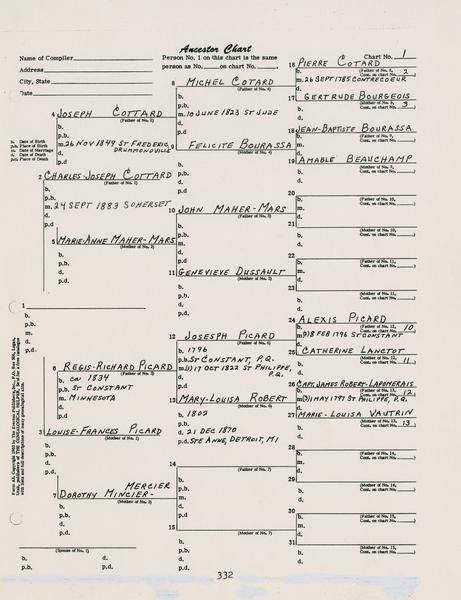 Ancestor Chart
Name of Compiler
Address
City, State
Date
Person No. 1 on this chart is the same
person as No. on chart No. .
Chart No. 1
16 PIERRE COTARD
(Father of No. 8,
Cont. on chart No. 2
b.
m. 26 SEPT 1785 CONTRECOEUR
d.
8 MICHEL COTARD
(Father of No. 4)
b.
p.b.
m. 10 JUNE 1823 ST JUDE
d.
p.d.
17 GERTRUDE BOURGEOIS
(Mother of No. 8,
Cont. on chart No. 3
b.
d.
4 JOSEPH COTTARD
(Father of No. 2)
b.
p.b.
m. 26 NOV 1849 ST FREDERIC
DRUMMONDVILLE
d.
p.d.
b. Date of Birth
p.b. Place of Birth
m. Date of Marriage
d. Date of Death
p.d. Place of Death
18 JEAN-BAPTISTE BOURASSA
(Father of No. 9,
Cont. on chart No.
b.
m.
d.
9 FELICITE BOURASSA
(Mother of No. 4)
b.
p.b.
d.
p.d.
19 AMABLE BEAUCHAMP
(Mother of No. 9,
Cont. on chart No.
b.
d.
2 CHARLES-JOSEPH COTTARD
(Father of No. 1)
b.
p.b.
m. 24 SEPT 1883 SOMERSET
d.
p.d.
20
(Father of No. 10,
Cont. on chart No.
b.
m.
d.
10 JOHN MAHER-MARS
(Father of No. 5)
b.
p.b.
m.
d.
p.d.
21
(Mother of No. 10,
Cont. on chart No.
b.
d.
5 MARIE-ANNE MAHER-MARS
(Mother of No. 2)
b.
p.b.
d.
p.d.
22
(Father of No. 11,
Cont. on chart No.
b.
m.
d.
11 GENEVIEVE DUSSAULT
(Mother of No. 5)
b.
p.b.
d.
p.d.
23
(Mother of No. 11,
Cont. on chart No.
b.
d.
1
b.
p.b.
m.
d.
p.d.
24 ALEXIS PICARD
(Father of No. 12,
Cont. on chart No. 10
b.
8 FEB 1796 ST CONSTANT
d.
12 JOSESPH PICARD
(Father of No. 6)
b. 1796
p.b. ST CONSTANT, P.Q.
m.(1) 17 OCT 1822 ST PHILIPPE,
d. P.Q.
p.d.
25 CATHERINE LANCTOT
(Mother of No. 12,
Cont. on chart No. 11
b.
d.
6 REGIS-RICHARD PICARD
(Father of No. 3)
b. ca 1834
p.b. ST CONSTANT
m. MINNESOTA
d.
p.d.
26 CAPT. JAMES ROBERT-LAPOMERAIS
Cont. on chart No. 12
b.
MAY 1797 ST PHILIPPE, P.Q.
d.
13 MARY-LOUISA ROBERT
(Mother of No. 6)
b. 1802
p.b.
d. 21 DEC 1870
p.d. STE ANNE, DETROIT, MI
27 MARIE-LOUISA VAUTRIN
(Mother of No. 13,
Cont. on chart No. 13
b.
d.
3 LOUISE-FRANCES PICARD
(Mother of No. 1)
b.
p.b.
d.
p.d.
28
(Father of No. 14,
Cont. on chart No.
b.
m.
d.
14
(Father of No. 7)
b.
p.b.
m.
d.
p.d.
29
(Mother of No. 14,
Cont. on chart No.
b.
d.
MERCIER
7 DOROTHY MINCIER-
(Mother of No. 3)
b.
p.b.
d.
p.d.
30
(Father of No. 15,
Cont. on chart No.
b.
m.
d.
15
(Mother of No. 7)
b.
p.b.
d.
p.d.
31
(Mother of No. 15,
Cont. on chart No.
b.
d.
(Spouse of No. 1)
b. d.
p.b. p.d.
332